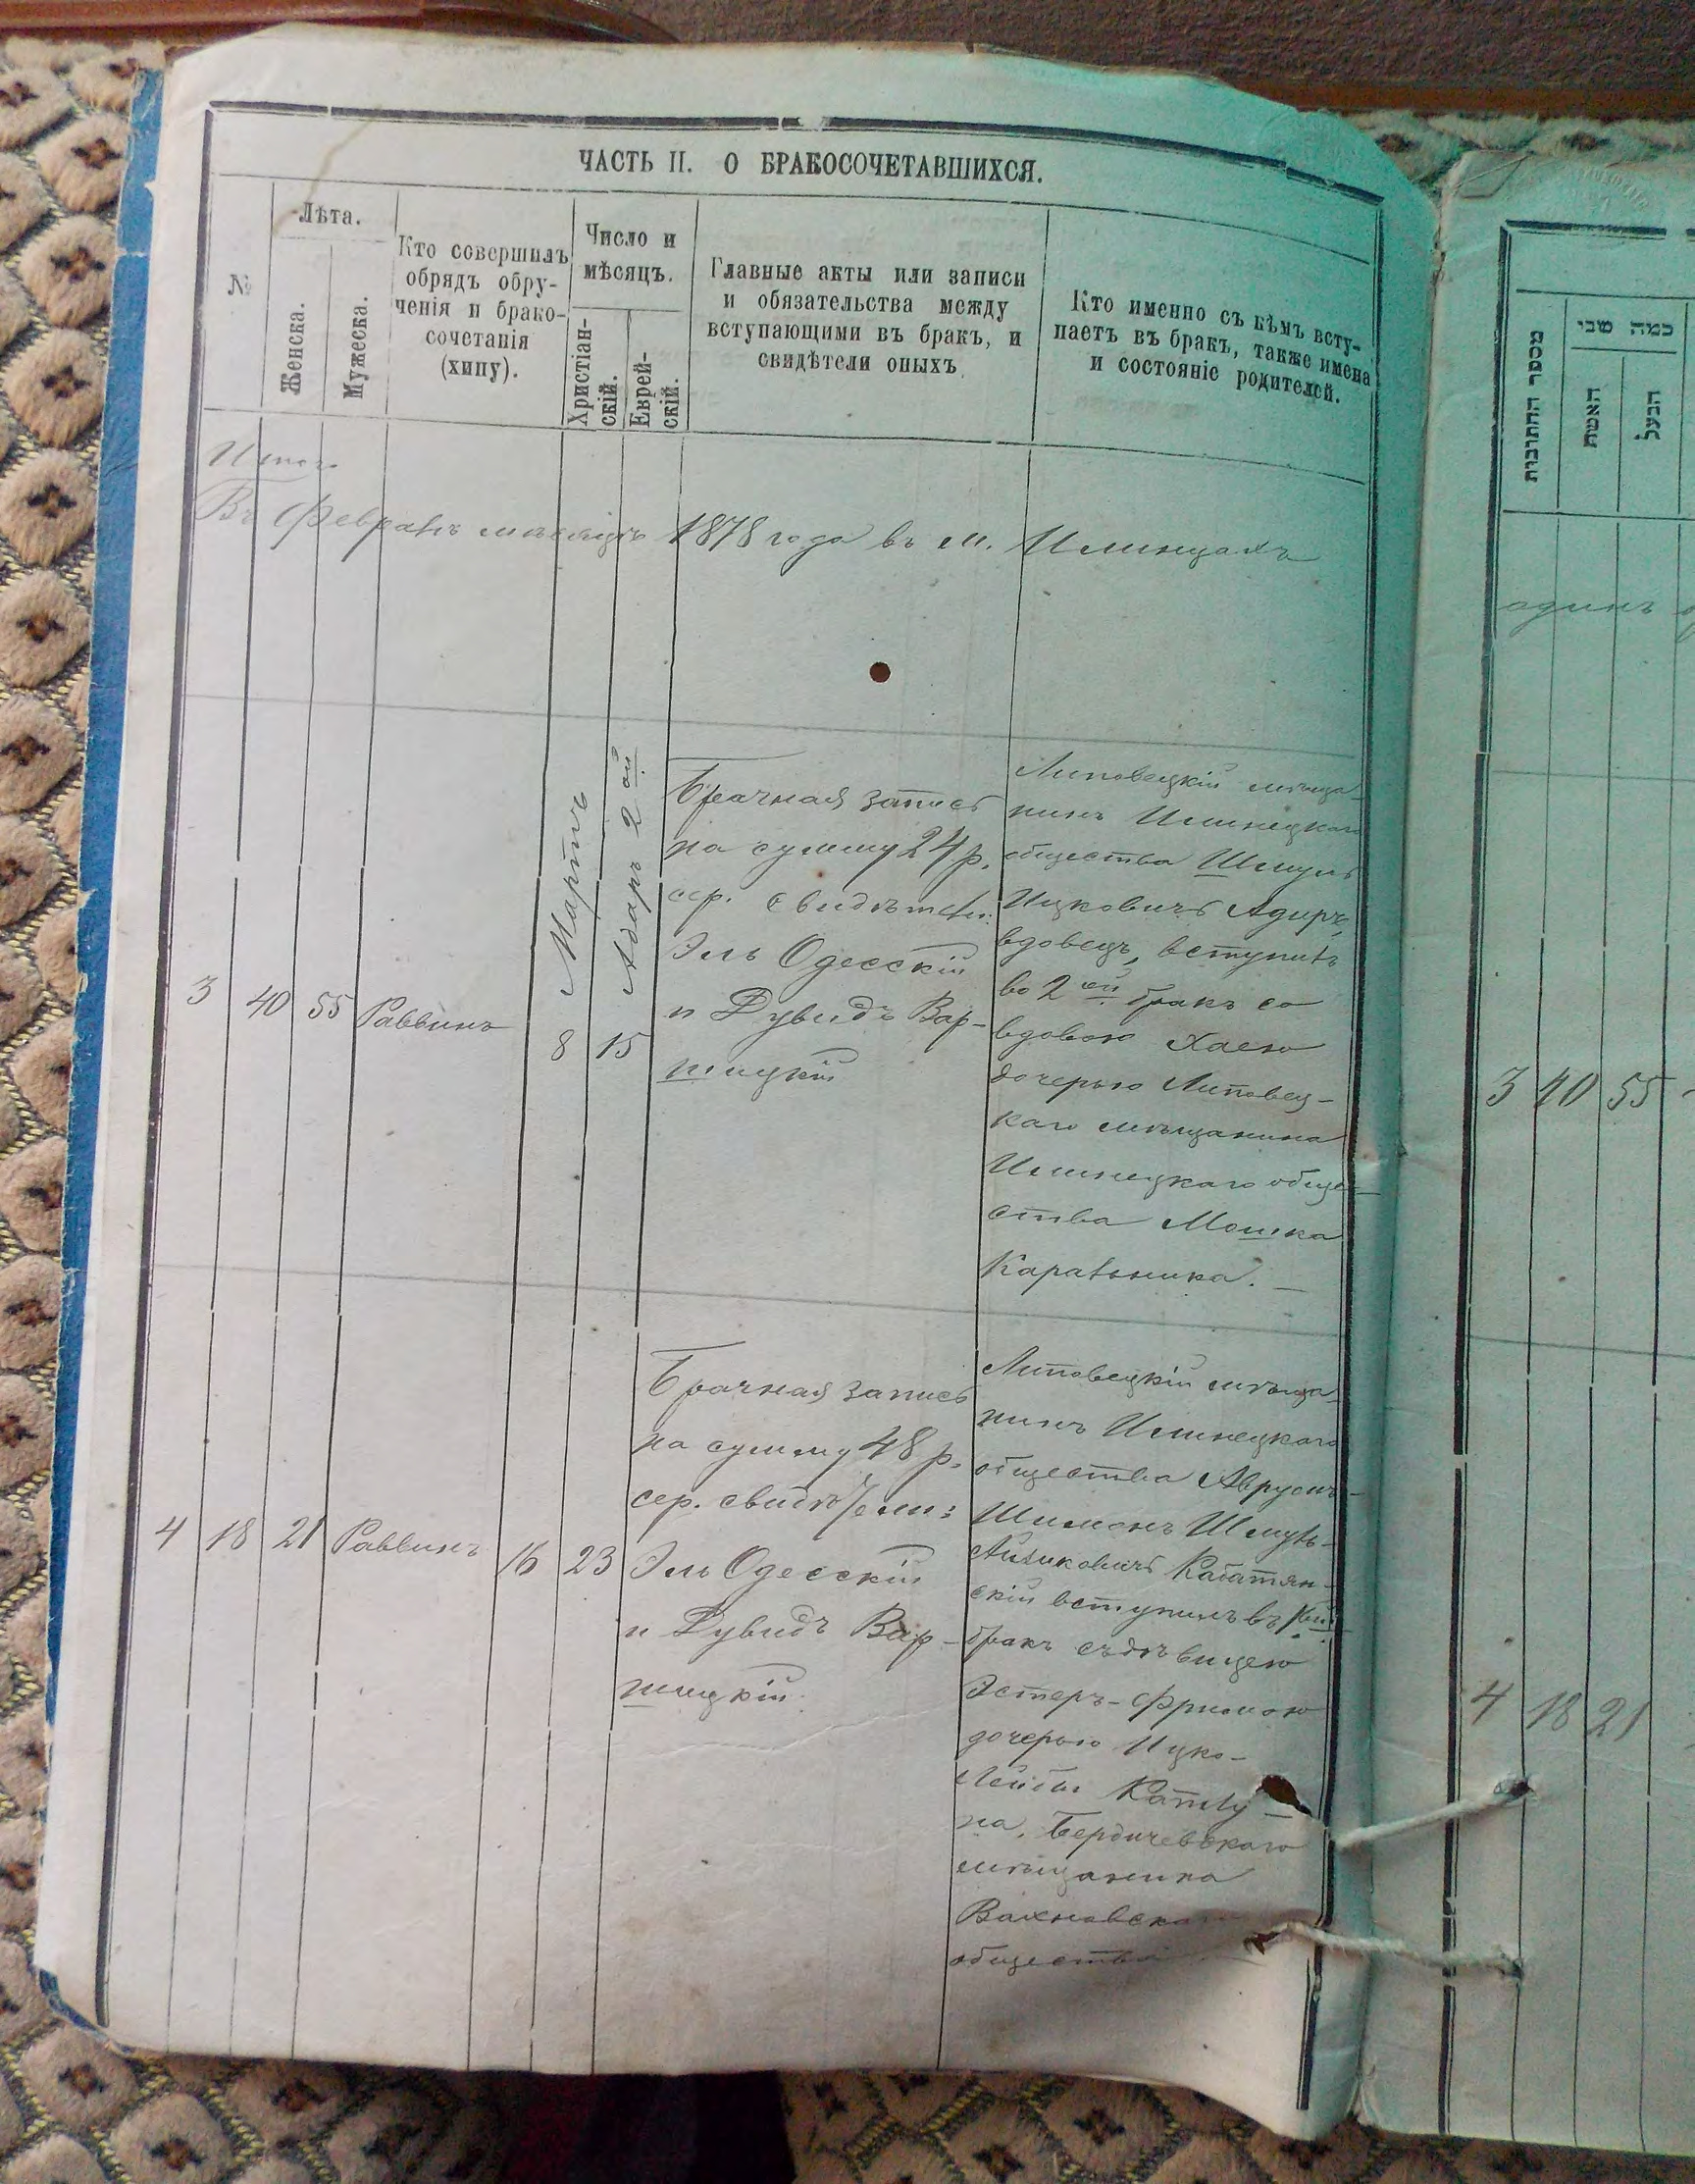 ЧАСТЬ II. О БРАКОСОЧЕТАВШИХСЯ.
№
Лѣта.
Женска.
Мужеска.
Кто совершилъ
обрядъ обру-
ченія и брако-
сочетанія
(хипу).
Число и
мѣсяцъ.
Христіан-
скій.
Еврей-
скій.
Главные акты или записи
и обязательства между
вступающими въ бракъ, и
свидѣтели оныхъ.
Кто именно съ кѣмъ всту-
паетъ въ бракъ, также имена
и состояніе родителей.
Итого
Въ Февралѣ мѣсяцѣ 1878 года въ м. Илинцахъ
3
40
55
Раввинъ
Мартъ
8
Адаръ 2ой
15
Брачная запись
на сумму 24 р.
сер. свидѣтели:
Эль Одесскій
и Дувидъ Вар-
шицкій
Липовецкій мѣща-
нинъ Илинецкаго
общества Шмуль
Ицковичъ Адиръ,
вдовецъ, вступилъ
во 2ой бракъ со
вдовою Хаею
дочерью Липовец-
каго мѣщанина
Илинецкаго обще-
ства Мошка
Каральника.
4
18
21
Раввинъ
16
23
Брачная запись
на сумму 48 р.
сер. свидѣтели:
Эль Одесскій
и Дувидъ Вар-
шицкій.
Липовецкій мѣща-
нинъ Илинецкаго
общества Аврумъ-
Шимонъ Шмуль-
Айзиковичъ
скій вступилъ въ
бракъ съ дѣвицею
Эстеръ-Фримою
дочерью Ицко-
Лейбы
на, Бердичевскаго
мѣщанина
Вахновскаго
общества
מספר החתונות
כמה שני
האשה
הבעל
одинъ
3 40 55
4 18 21